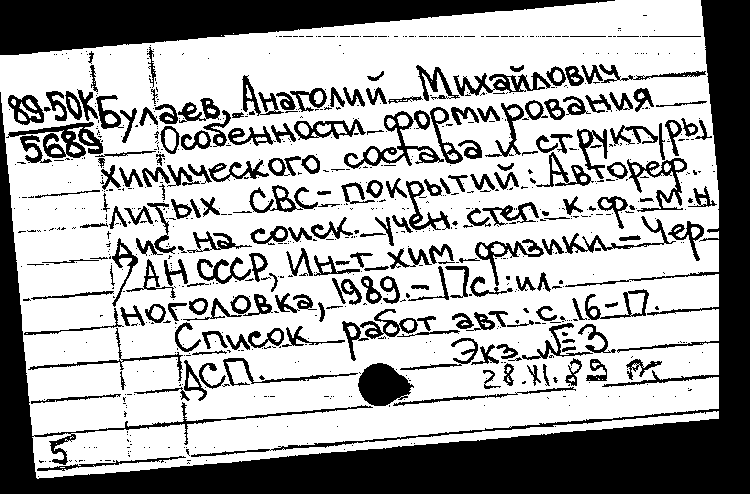 89-50К
5689
Булаев, Анатолий Михайлович
Особенности формирования
химического состава и структуры
литых СВС-покрытий: Автореф.
дис. на соиск. учен. степ. к.ф.-м.н.
/ АН СССР, Ин-т хим. физики. – Чер-
ноголовка, 1989. – 17с.: ил.
Список работ авт.: с. 16-17.
ДСП. Экз. № 3
28.XI.89
5